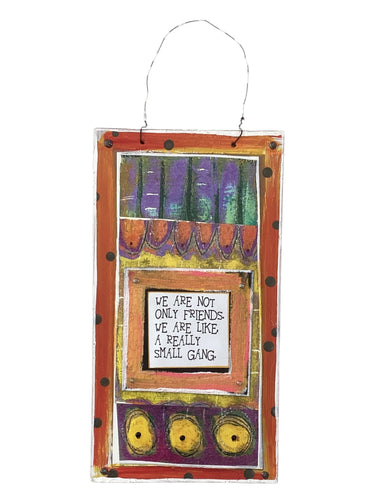 WE ARE NOT
ONLY FRIENDS.
WE ARE LIKE
A REALLY
SMALL GANG.